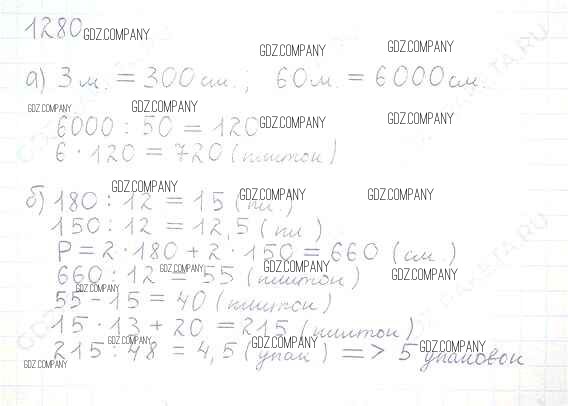 1280 GDZ.COMPANY
GDZ.COMPANY GDZ.COMPANY
а) 3 м. = 300 см. ; 60 м. = 6000 см.
GDZ.COMPANY GDZ.COMPANY
6000 : 50 = 120 GDZ.COMPANY GDZ.COMPANY
6 · 120 = 720 (плиток)
GDZ.COMPANY GDZ.COMPANY GDZ.COMPANY
б) 180 : 12 = 15 (пл.)
150 : 12 = 12,5 (пл)
P = 2 · 180 + 2 · 150 = 660 (см.)
GDZ.COMPANY GDZ.COMPANY GDZ.COMPANY
660 : 12 = 55 (плиток)
GDZ.COMPANY
55 - 15 = 40 (плиток)
15 · 13 + 20 = 215 (плиток)
GDZ.COMPANY GDZ.COMPANY GDZ.COMPANY
215 : 48 = 4,5 (упак) => 5 упаковок
GDZ.COMPANY